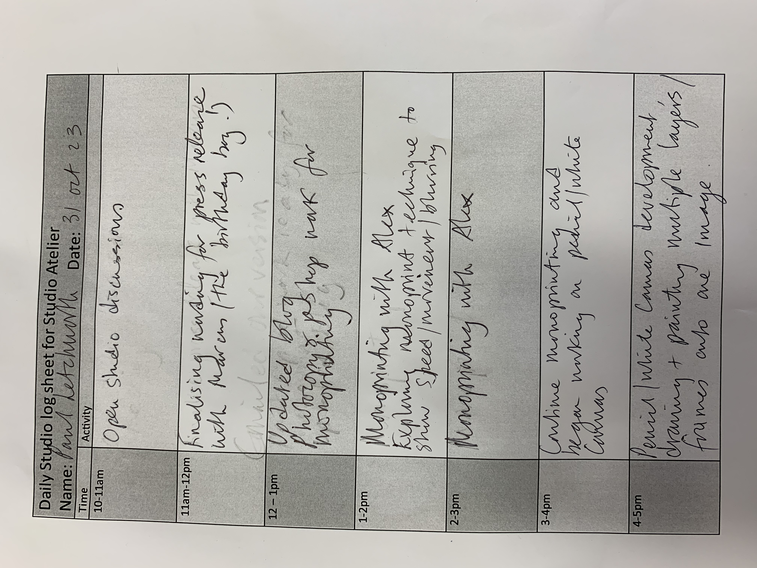 Daily Studio log sheet for Studio Atelier
Name: Paul Letchworth Date: 31 Oct 23
Time Activity
10-11am Open Studio discussions
11am-12pm Finalising wording for press release
with Marcus (the birthday boy!)
12 – 1pm Updated blog
Photocopy & pshop work for
monoprinting
1-2pm Monoprinting with Alex
Exploring monoprint technique to
show speed/movement/blurring
2-3pm Monoprinting with Alex
3-4pm Continue monoprinting and
began working on pencil/white
Canvas
4-5pm Pencil/White Canvas development,
drawing + painting multiple layers/
frames onto one Image.